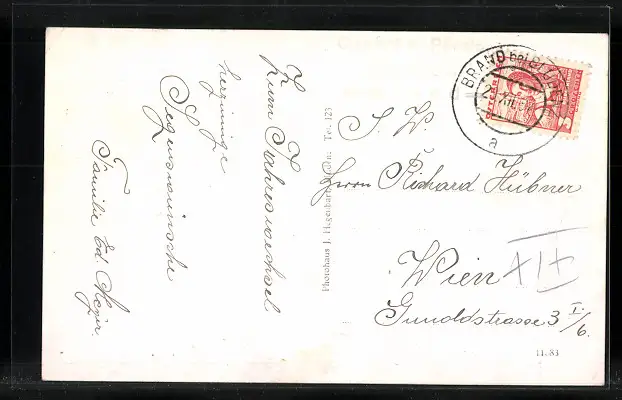 Zum Jahreswechsel
herzinnige
Segenswünsche
Familie Ed. Mayr.
Photohaus J. Hegenbart Tel. 123
BRAND bei
XII
a
S. W.
Herrn Richard Hübner
Wien
XIX
Gunoldstrasse 3 I/6.
11.83